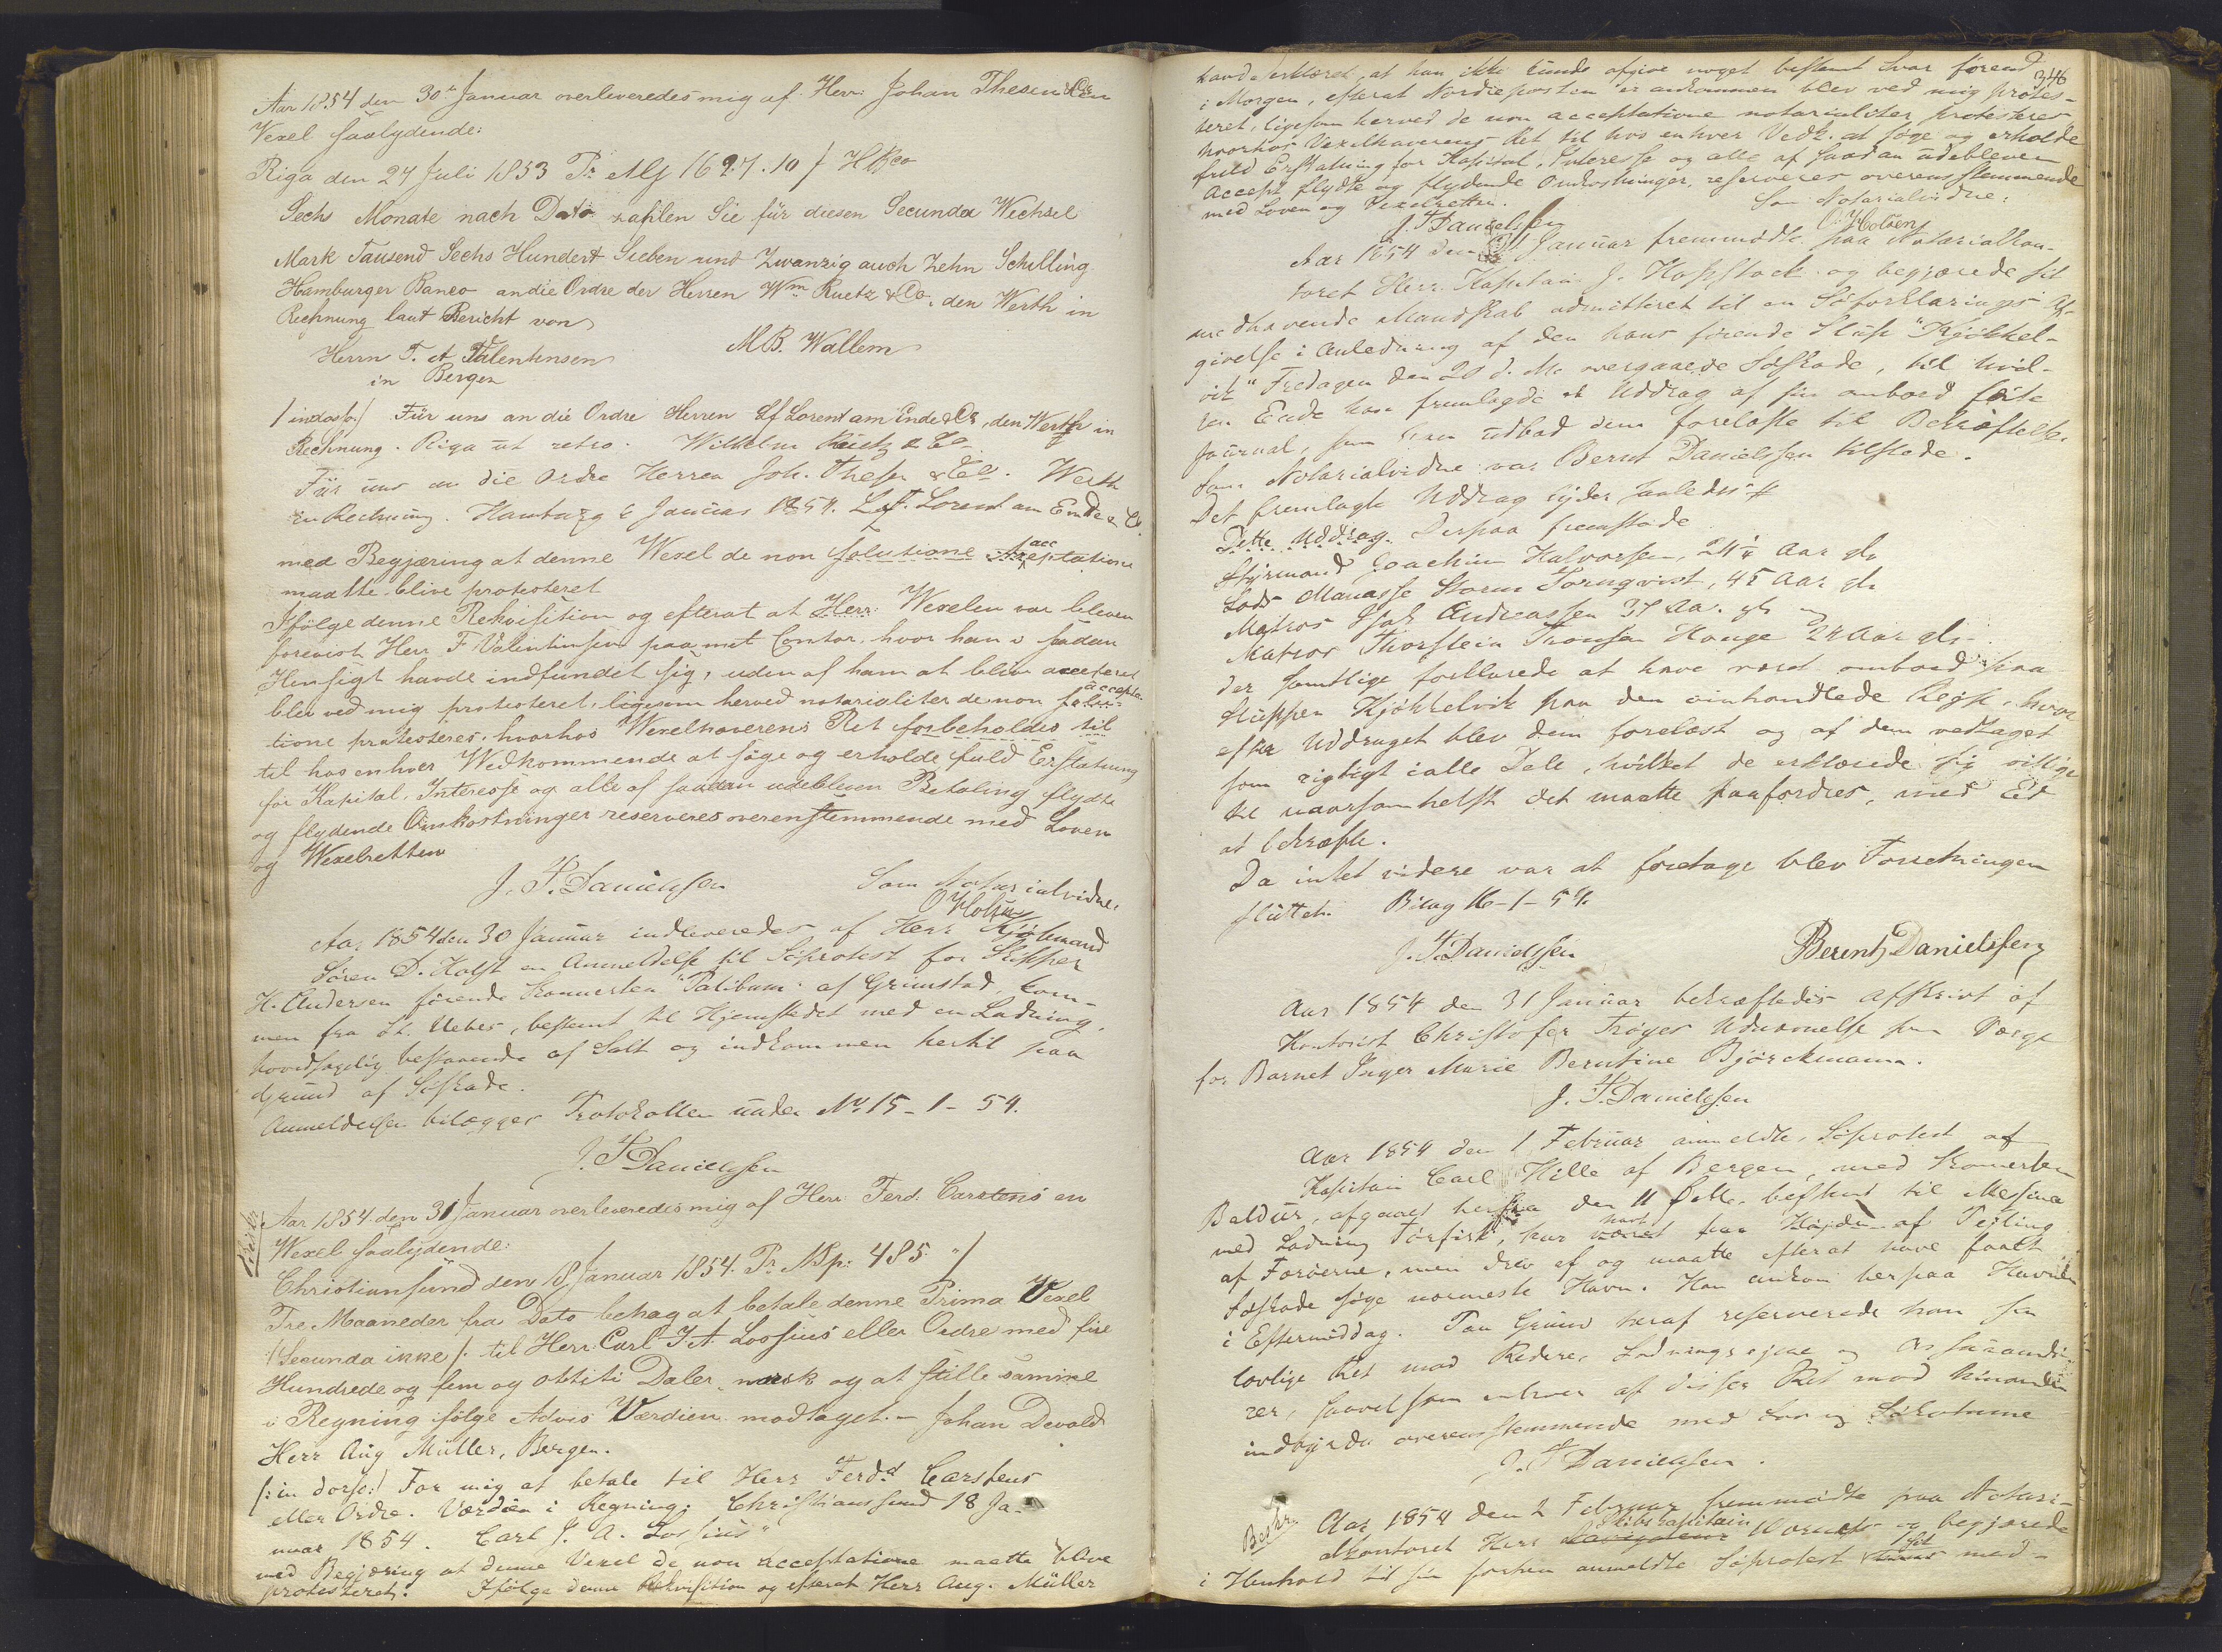 Aar 1854 den 30te Januar overleveredes mig af Herr Johan Thesen & Co en
Vexel saalydende:
Riga den 24 Juli 1853 Pr Mk 1627.10 / HBco
Sechs Monate nach Dato zahlen Sie für diesen Secunda Wechsel
Mark Tausend Sechs Hundert Sieben und Zwanzig auch Zehn Schilling
Hamburger Banco an die Ordre der Herren Wm Ruetz & Co, den Werth in
Rechnung laut Bericht von
Herrn F. et Valentinsen M.B. Wallem
in Bergen
/ indorso / Für uns an die Ordre Herren Lf Lorent am Ende & Co, den Werth in
Rechnung. Riga ut retro. Wilhelm Ruetz & Co
Für uns an die Ordre Herren Joh. Thesen & Co. Werth
in Rechnung. Hamburg 6 Januar 1854. L.f. Lorent am Ende & Co.
med Begjæring at denne Vexel de non solutione acceptatione
maatte blive protesteret
Ifölge denne Rekvisition og efterat at Herr Wexelen var bleven
forevist Herr F Valentinsen paa mit Contor, hvor han i sadan
Hensigt havde indfundet sig, uden af ham at blive acceteret
blev ved mig protesteret, ligesom herved notarialiter de non solu- accepta-
tione protesteres, hvorhos Wexelhaverens Ret forbeholdes til
til hos enhver Wedkommende at söge og erholde fuld Erstatning
for Kapital, Interesse og alle af saadan udebleven Betaling flydte
og flydende Omkostninger reserveres overenstemmende med Loven
og Wexelretten
J. F. Danielssen Som Notarialvidne:
O Holsen
Aar 1854 den 30 Januar indleveredes af Herr Kjöbmand
Sören D. Holst en Anmeldelse til Söprotest for Skipper
H. Andersen förende Skonnerten "Patibum" af Grimstad, kom-
men fra St. Uebes, bestemt til Hjemstedet med en Ladning,
hovedsagelig bestaaende af Salt og indkommen hertil paa
Grund af Söskade.
Anmeldelsen bilægges Protokollen under No 15-1-54.
J. F. Danielssen
Aar 1854 den 31 Januar overleveredes mig af Herr Ferd. Carstens en
Wexel saalydende:
Christiansund den 18 Januar 1854. Pr NSp: 485 " /
Tre Maaneder fra Dato behag at betale denne Prima Vexel
(Secunda ikke) til Herr Carl J A Lossius eller Ordre med fire
Hundrede og fem og ottiti Daler norsk og at stille samme
i Regning ifölge Advis Værdien modtaget. - Johan Devold
Herr Aug Müller, Bergen.
/: in dorso:/ For mig at betale til Herr Ferdd Carstens
eller Ordre. Værdien i Regning. Christiansund 18 Ja-
nuar 1854. Carl J. A. Lossius"
med Begjæring at denne Vexel de non acceptatione maatte blive
protesteret. Ifölge denne Rekvisition og efterat Herr Aug. Müller
346
havde erklæret, at han ikke kunde afgive noget bestemt Svar förend
i Morgen, efterat Nordreposten er ankommen blev ved mig protes-
teret, ligesom herved de non acceptatione notarialiter protesteres
hvorhos Vexelhaverens Ret til hos enhver Vedk. at söge og erholde
fuld Erstatning for Kapital, Interesse og alle af saadan udebleven
Accept flydte og flydende Omkostninger, reserveres overensstemmende
med Loven og Vexelretten. Som Notarialvidne:
J. F. Danielssen O. Holsen
Aar 1854 den 31 Januar fremmödte paa Notarialkon-
toret Herr Kapitain J. Kopstock og begjærede sit
medhavende Mandskab admitteret til en Söforklarings Af-
givelse i Anledning af den hans förende Slup "Kjökkel-
vik" Fredagen den 20 d. M. overgaaede Söskade, til hvil-
ken Ende han fremlagde et Uddrag af sin ombord förte
Journal, som han udbad dem forelæste til Bekræftelse.
Som Notarialvidne var Bernt Danielssen tilstede.
Det fremlagte Uddrag lyder saaledes #
Dette Uddrag. Derpaa fremstode
Styrmand Joachim Halvorsen, 24 1/4 Aar gl.
Lods Manasse Storm Tornqvist, 45 Aar gl.
Matros Isak Andreassen 37 Aa. gl. og
Matros Thorstein Tronsen Hauge 22 Aar gl.
der samtlige forklarede at have været ombord paa
Sluppen Kjökkelvik paa den omhandlede Reise, hvor
efter Uddraget blev dem forelæst og af dem vedtaget
som rigtigt i alle Dele, hvilket de erklærede sig villige
til naarsomhelst det maatte paafordres, med Ed
at bekræfte.
Da intet videre var at foretage blev Forretningen
sluttet. Bilag 16-1-54.
J. F. Danielssen Berent Danielssen
Aar 1854 den 31 Januar bekræftedes Afskrivt af
Kontorist Christofer Tröyes Udnævnelse som Værge
for Barnet Inger Marie Berntine Björckmann.
J. F. Danielssen
Aar 1854 den 1 Februar anmeldte Söprotest af
Kapitain Carl Hille af Bergen, med Skonnerten
Baldur, afgaaet herfra den 11 bestemt til Messina
med Ladning Törfisk, har havt været paa Höiden af Peiling
af Færöerne, men drev af og maatte efterat have faaet
Söskade söge nærmeste Havn. Han ankom her paa Havnen
i Eftermiddag. Paa Grund heraf reserverede han sin
lovlige Ret mod Redere, Ladningseiere og Assurandö-
rer, saavelsom enhver af disses Ret mod hinanden
indbyrdes overensstemmende med Lov og Sökutyme
J. F. Danielssen.
Beskr. Aar 1854 den 2 Februar fremmödte paa Notari-
alkontoret Herr Skibskapitain og begjærede
i Henhold til sin forhen anmeldte Söprotest sit med-